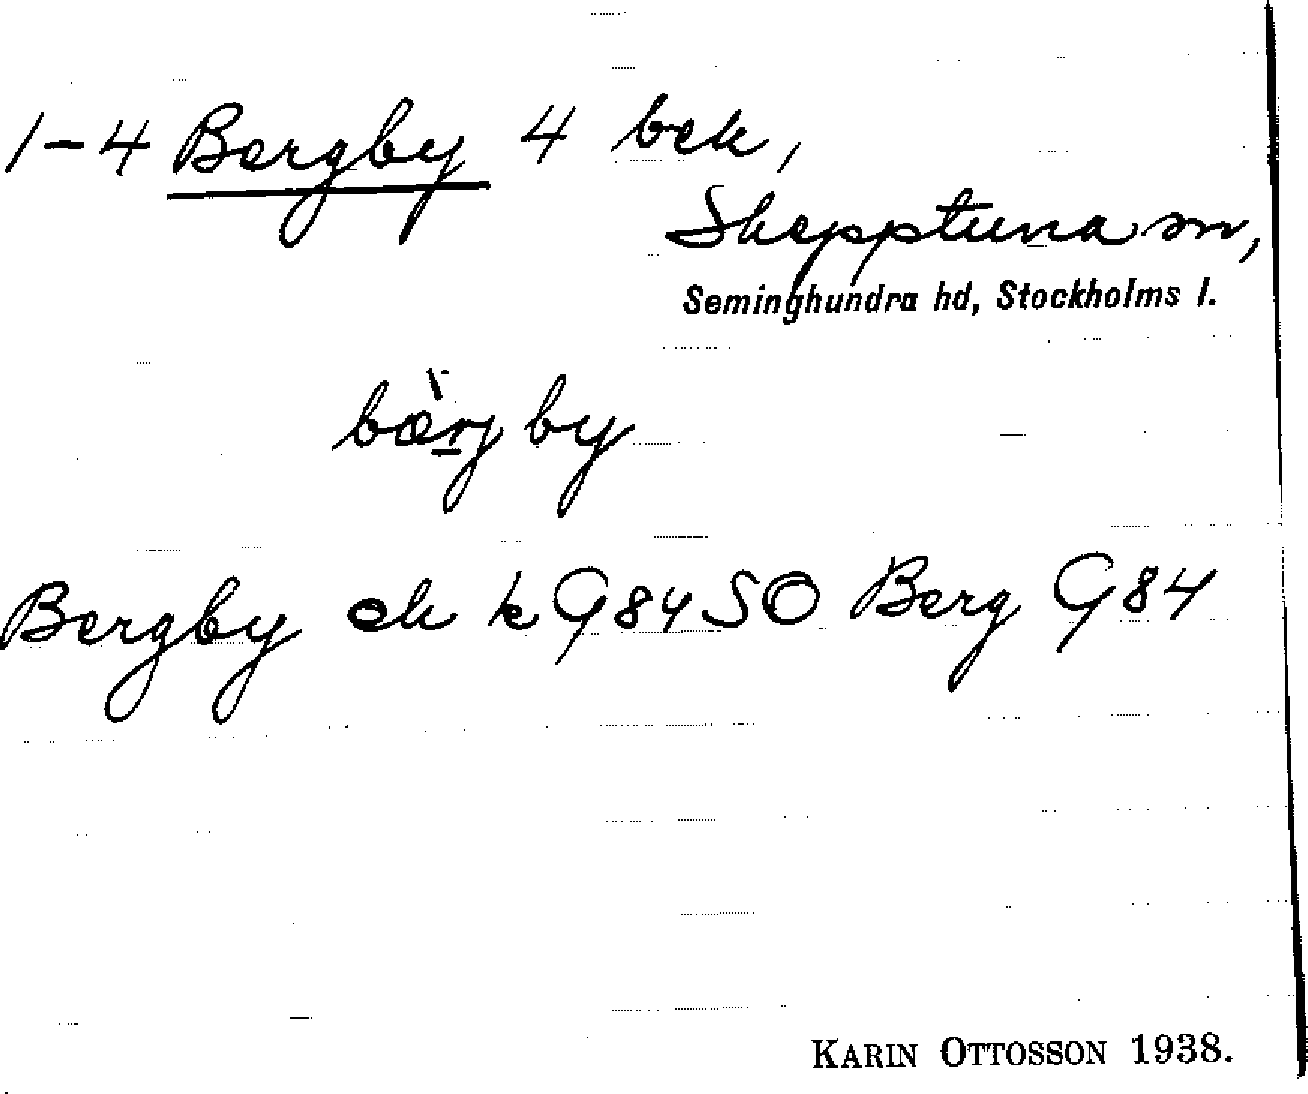 1-4 Bergby 4 bek,
Skepptuna sn,
Seminghundra hd, Stockholms l.
bæ̀rjby
Bergby ek k G84SO Berg G84
KARIN OTTOSSON 1938.